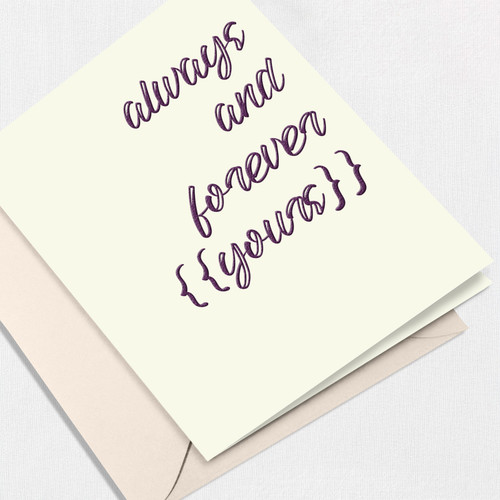 always
and
forever
{{yours}}